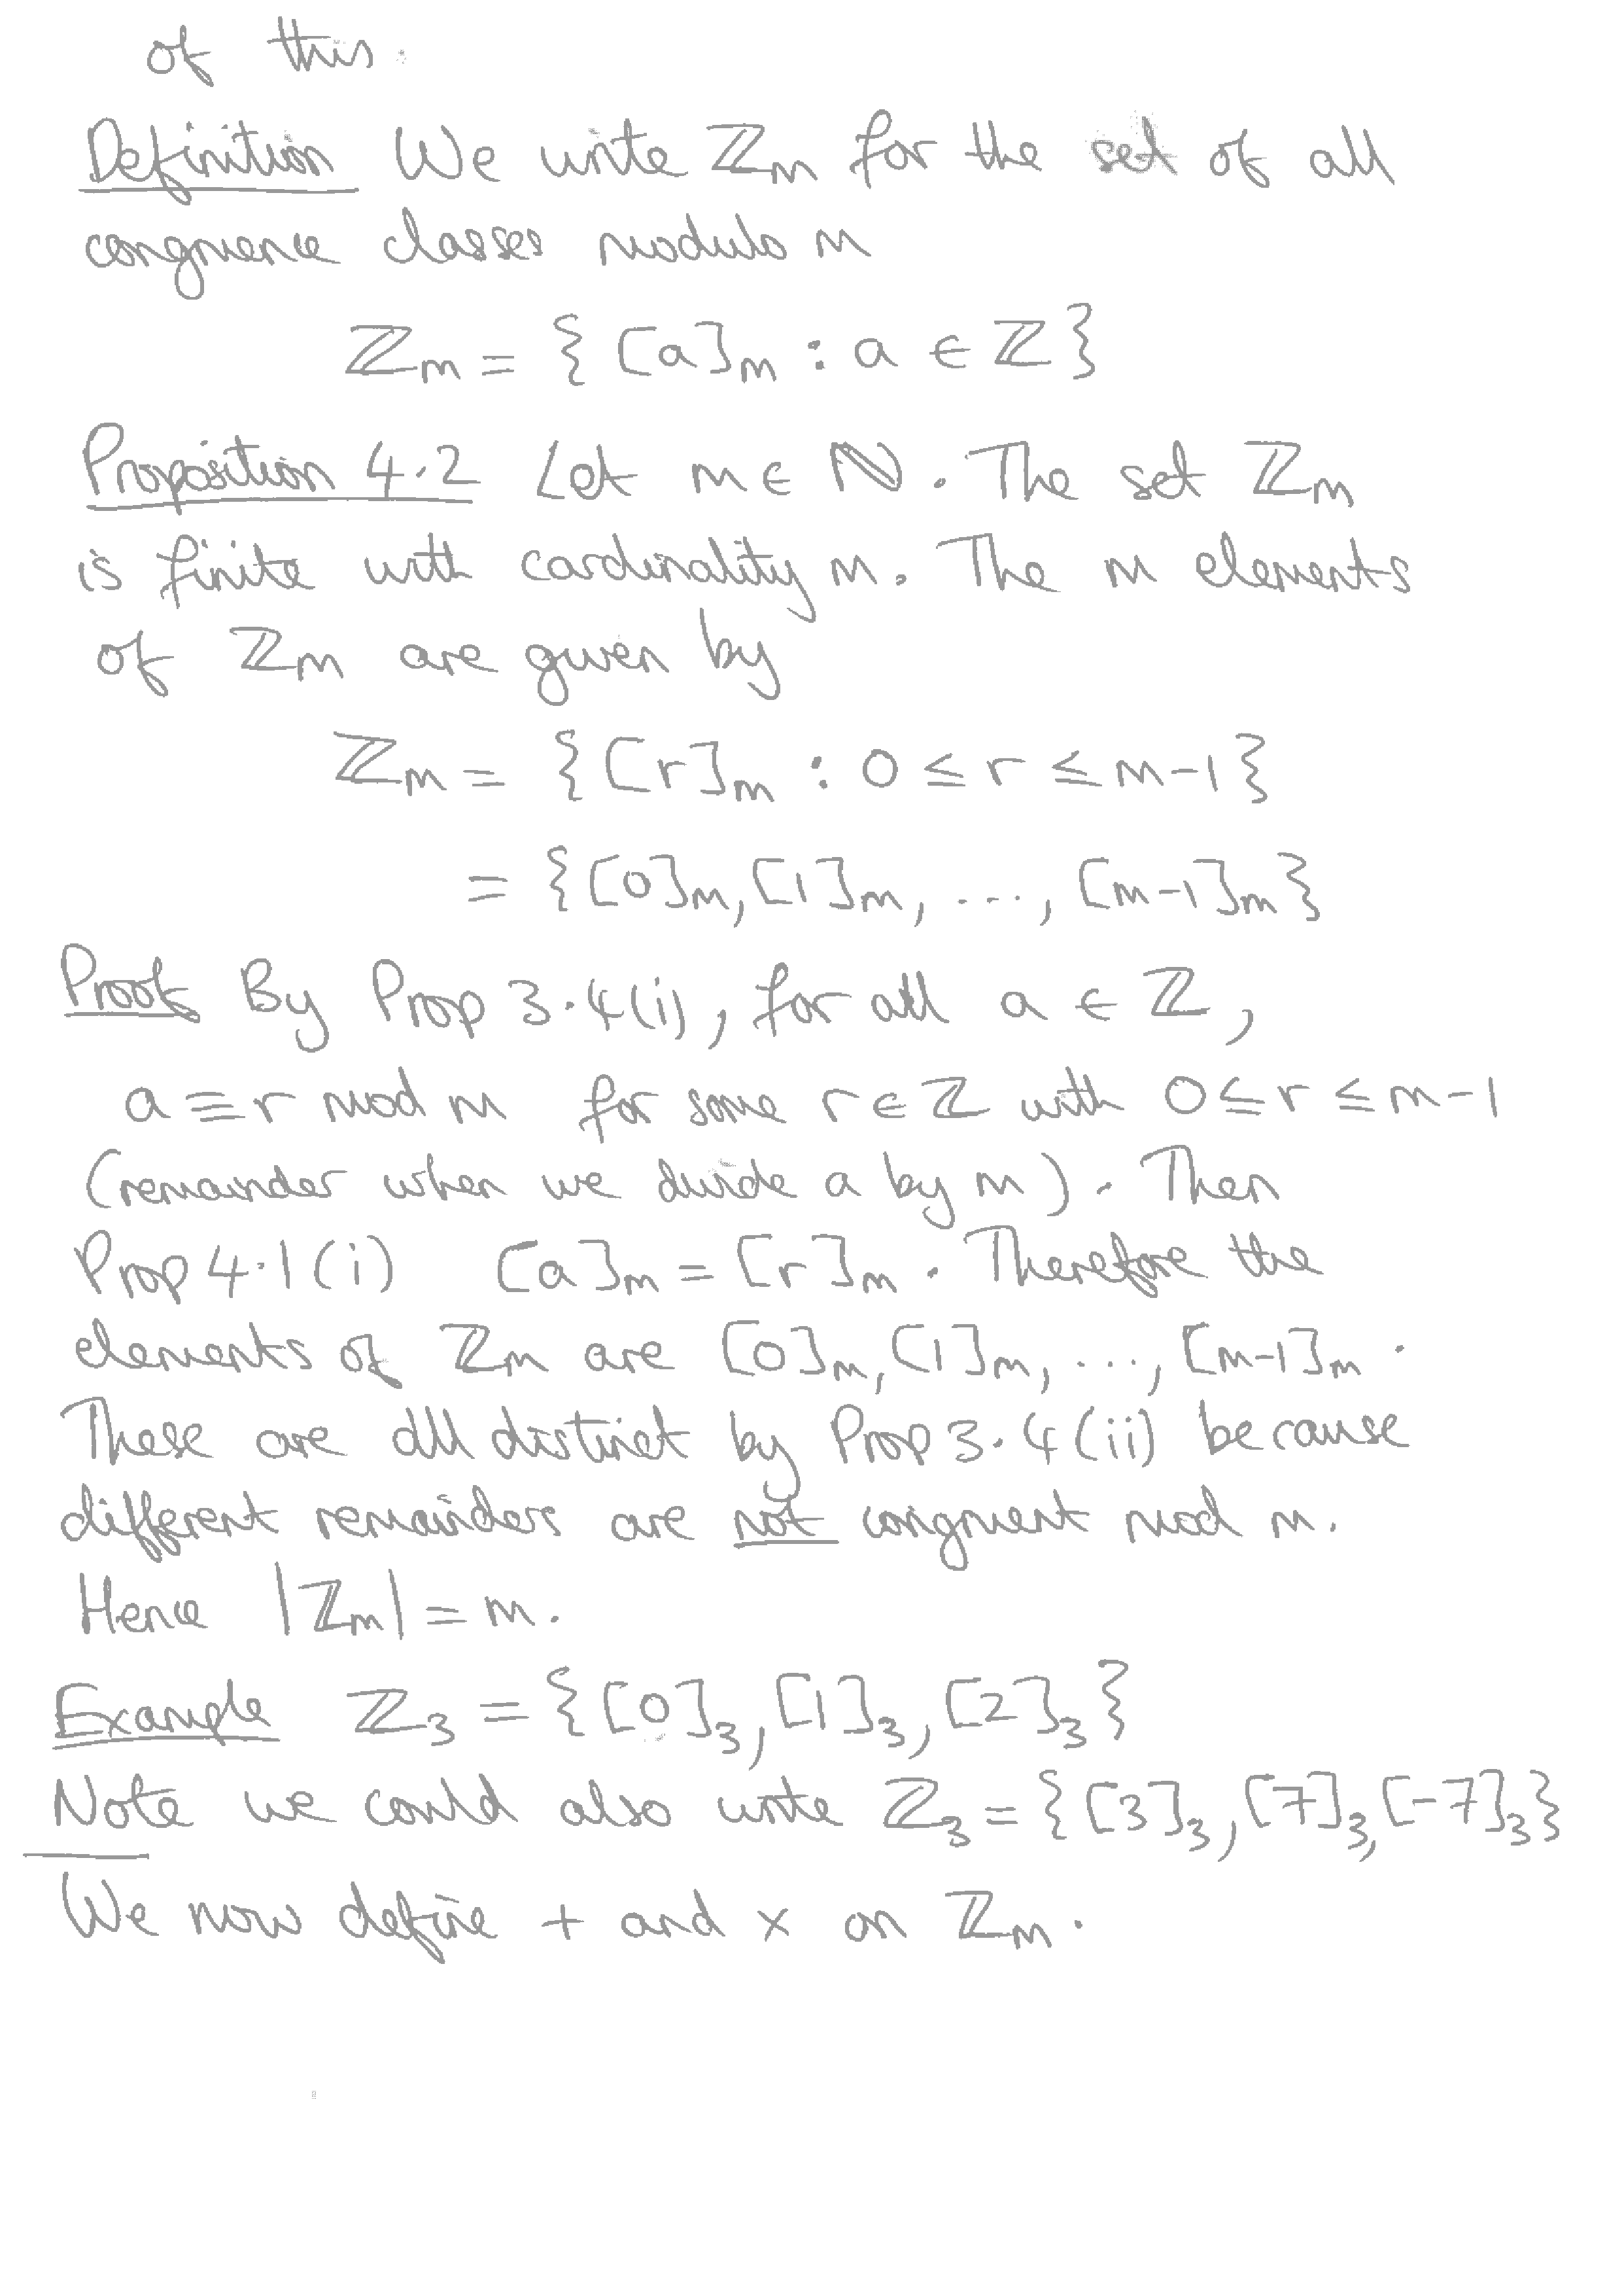 of this.
Definition We write ℤₘ for the set of all
congruence classes modulo m
ℤₘ = { [a]ₘ : a ∈ ℤ }
Proposition 4.2 Let m ∈ ℕ. The set ℤₘ
is finite with cardinality m. The m elements
of ℤₘ are given by
ℤₘ = { [r]ₘ : 0 ≤ r ≤ m-1 }
= { [0]ₘ, [1]ₘ, ..., [m-1]ₘ }
Proof By Prop 3.4(i), for all a ∈ ℤ,
a ≡ r mod m for some r ∈ ℤ with 0 ≤ r ≤ m-1
(remainder when we divide a by m). Then
Prop 4.1(i) [a]ₘ = [r]ₘ. Therefore the
elements of ℤₘ are [0]ₘ, [1]ₘ, ..., [m-1]ₘ.
These are all distinct by Prop 3.4(ii) because
different remainders are not congruent mod m.
Hence |ℤₘ| = m.
Example ℤ₃ = { [0]₃, [1]₃, [2]₃ }
Note we could also write ℤ₃ = { [3]₃, [7]₃, [-7]₃ }
We now define + and × on ℤₘ.